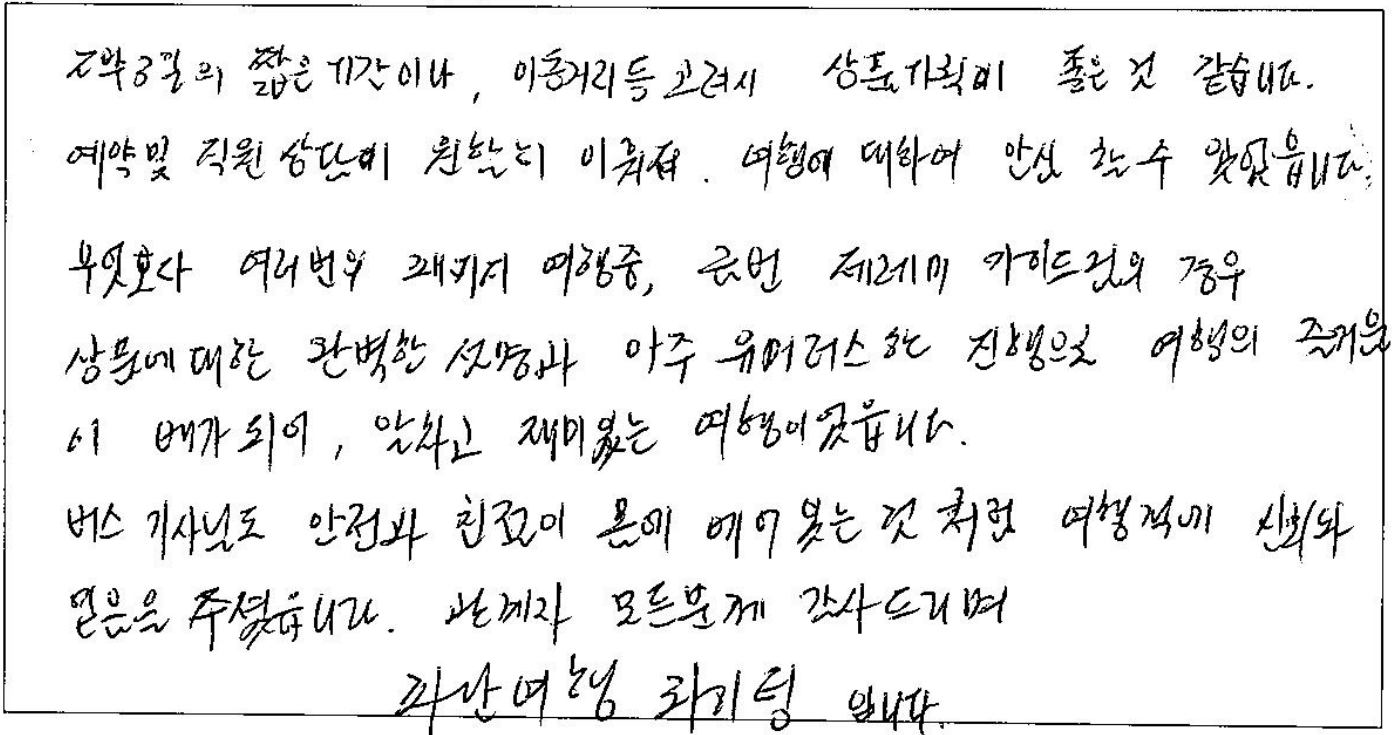 2박3일의 짧은 기간이나, 이동거리등 고려시 상품기획이 좋은 것 같습니다.
예약및 직원 상담이 원할히 이뤄져. 여행에 대하여 안심 할 수 있었읍니다.
무엇보다 여러번의 패키지 여행중, 금번 제레미 가이드님의 경우
상품에 대한 완벽한 설명과 아주 유머러스한 진행으로 여행의 즐거움
이 배가 되어, 알차고 재미있는 여행이였읍니다.
버스 기사님도 안전과 친절이 몸에 베어 있는 것 처럼 여행객에 신뢰와
믿음을 주셨습니다. 관계자 모든분께 감사드리며
여행 화이팅 입니다.